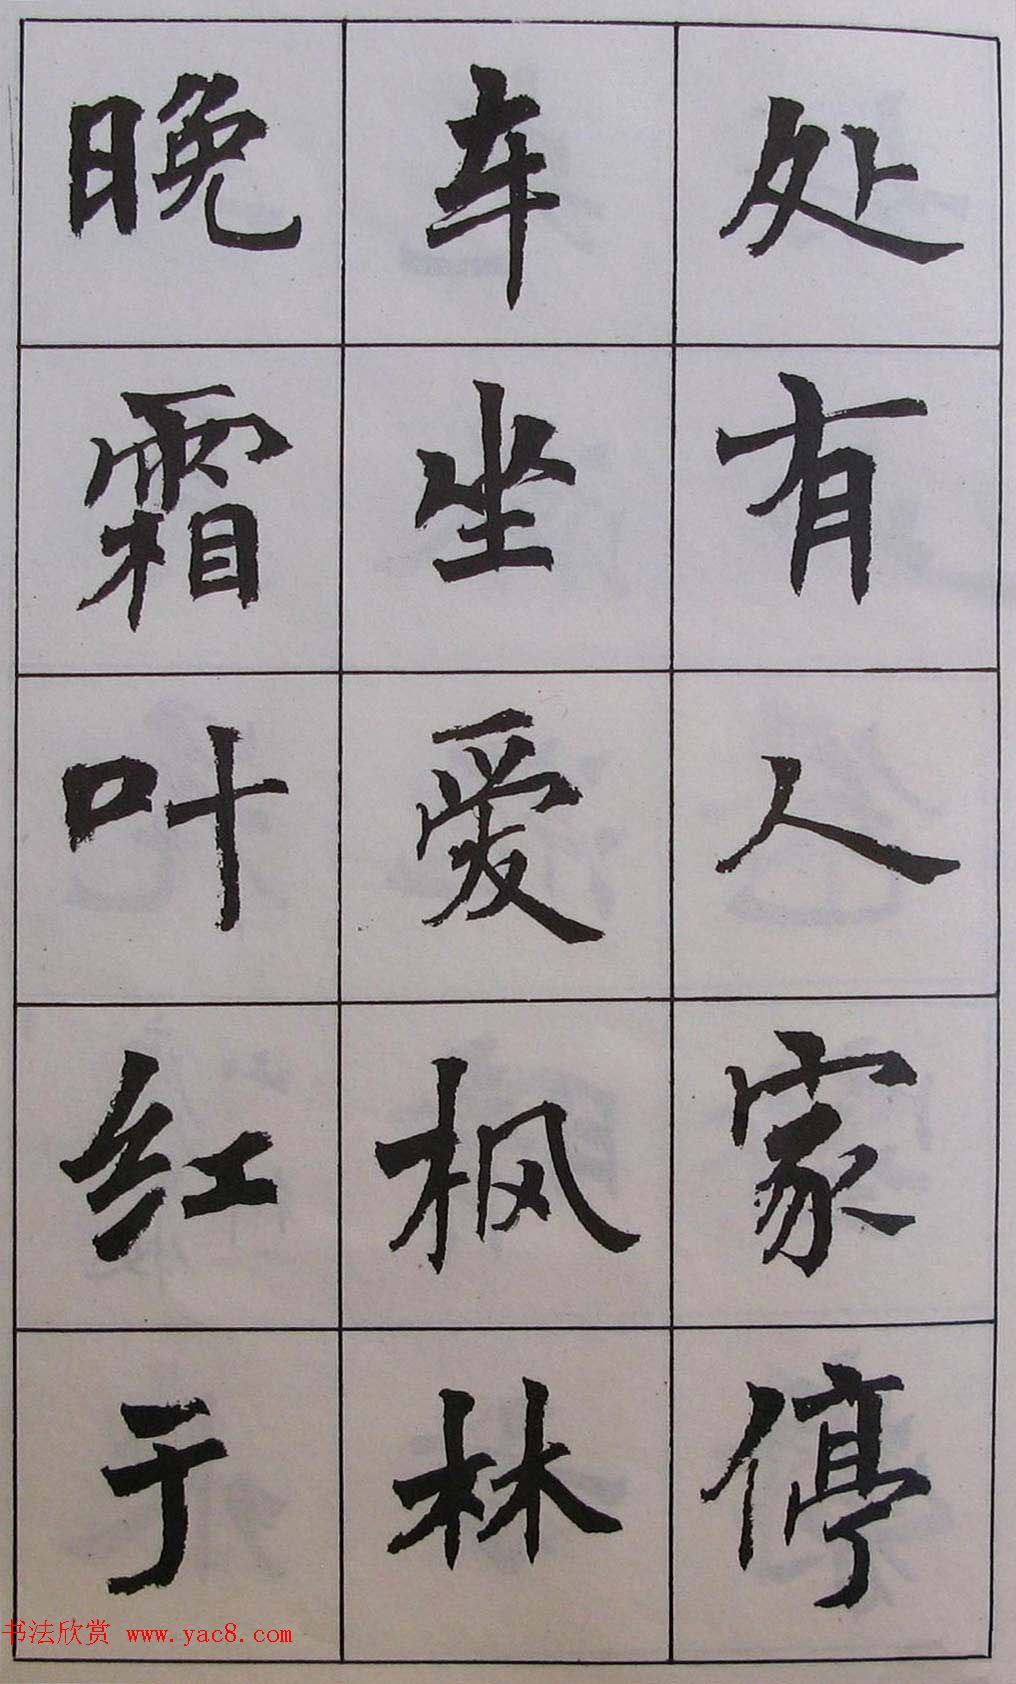 处有人家停
车坐爱枫林
晚霜叶红于
书法欣赏 www.yac8.com